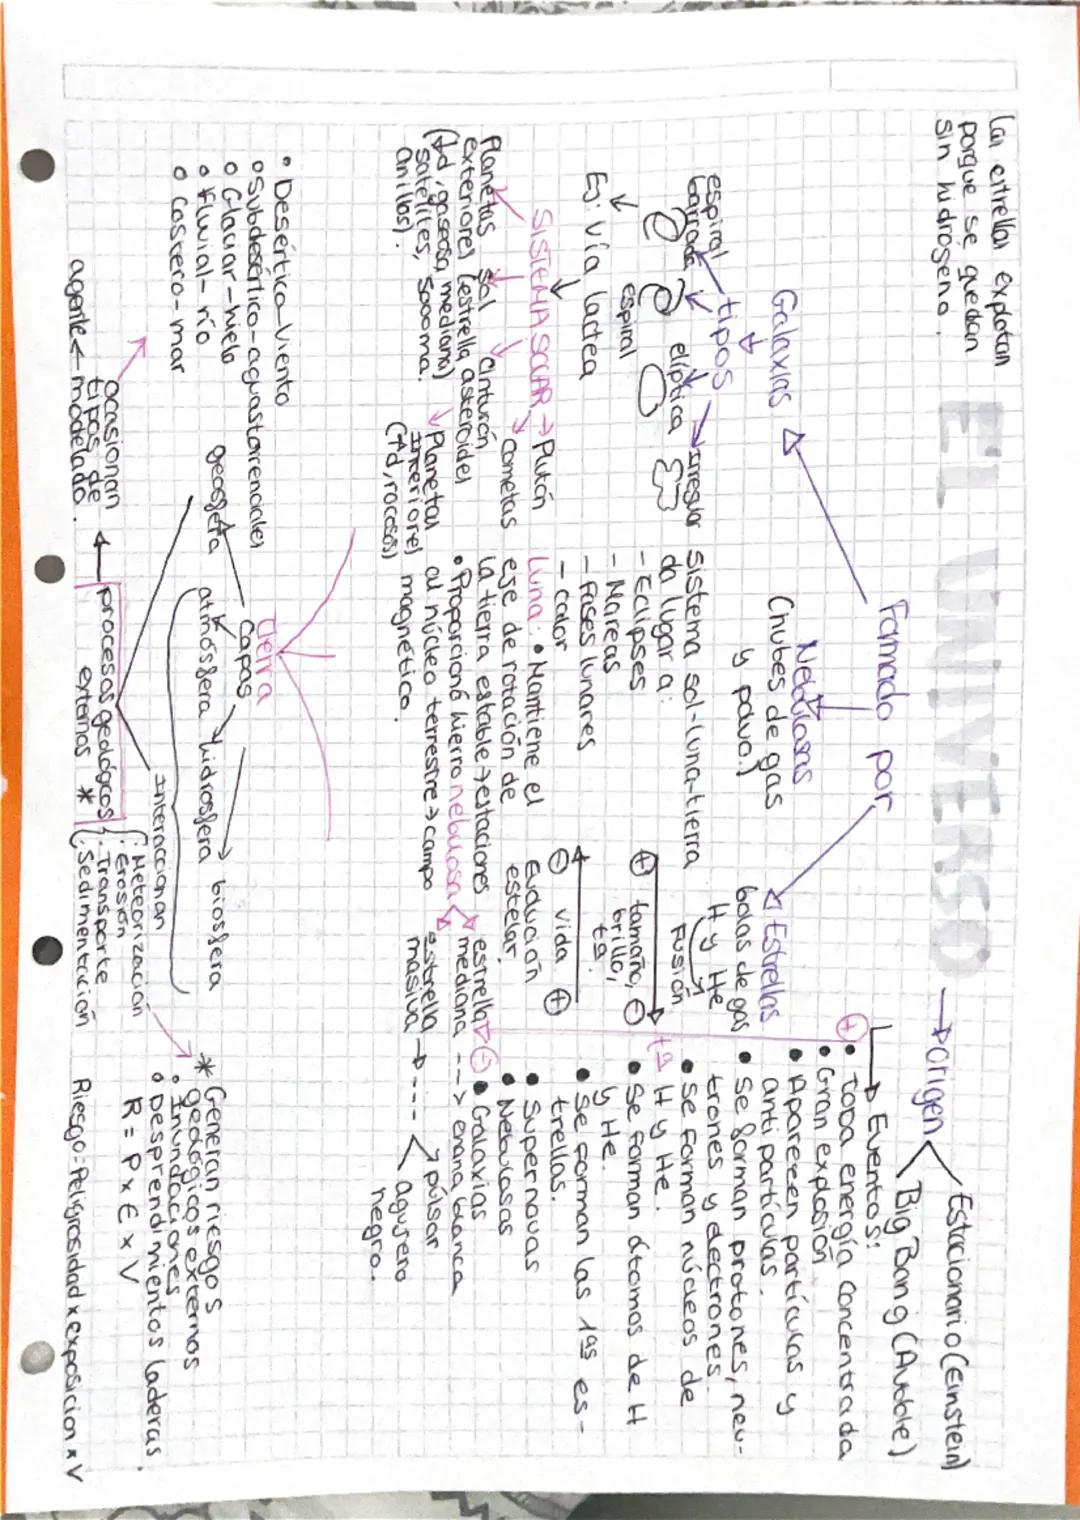 Las estrellas explotan
porque se quedan
sin hidrógeno.
EL UNIVERSO
→ Origen
Estacionario (Einstein)
Big Bang (Hubble)
→ Eventos:
+
• Toda energía concentrada
• Gran explosión
• Aparecen partículas y
antipartículas.
• Se forman protones, neu-
trones y electrones.
• Se forman núcleos de
H y He.
• Se forman átomos de H
y He.
• Se forman las 1as es-
trellas.
• Supernovas
• Nebulosas
• Galaxias
tª
-
Formado por
Galaxias
Nebulosas
(nubes de gas
y polvo.)
Estrellas
bolas de gas
H y He
Fusión
+ tamaño, -
brillo,
tª.
- vida +
Evolución
estelar
nebulosa
estrella
mediana --> enana blanca
estrella
masiva → ----
púlsar
agujero
negro.
tipos
espiral
barrada
espiral
elíptica
Irregular
Ej: vía láctea
SISTEMA SOLAR → Plutón
Planetas
exteriores
(+d, gaseosa,
satélites,
anillos).
Sol
(estrella mediana)
5000 ma.
Cinturón
asteroides
Cometas
Planetas
Interiores
(+d, rocosos)
Sistema sol-luna-tierra
da lugar a:
- Eclipses
- Mareas
- Fases lunares
- calor
Luna: • Mantiene el
eje de rotación de
la tierra estable → estaciones
• Proporcionó hierro
al núcleo terrestre → campo
magnético.
Tierra
Capas
geosfera
atmósfera
hidrosfera
biosfera
Interaccionan
procesos geológicos
externos *
• Meteorización
• Erosión
• Transporte
• Sedimentación
ocasionan
tipos de
modelado.
agente ←
• Desértico-viento
• Subdesértico-aguas torrenciales
• Glaciar-hielo
• Fluvial-río
• Costero-mar
* Generan riesgos
geológicos externos
• Inundaciones
• Desprendimientos laderas.
R = P x E x V
Riesgo = Peligrosidad x exposicion x V